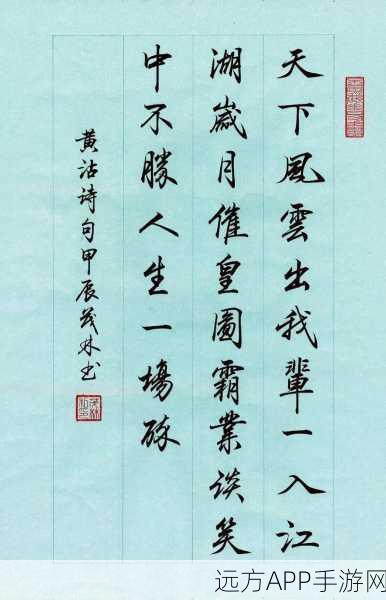 天下風雲出我輩一入江
湖嵗月催皇圖霸業谈笑
中不勝人生一場酔
黄沾诗句甲辰茂林书
远方APP手游网